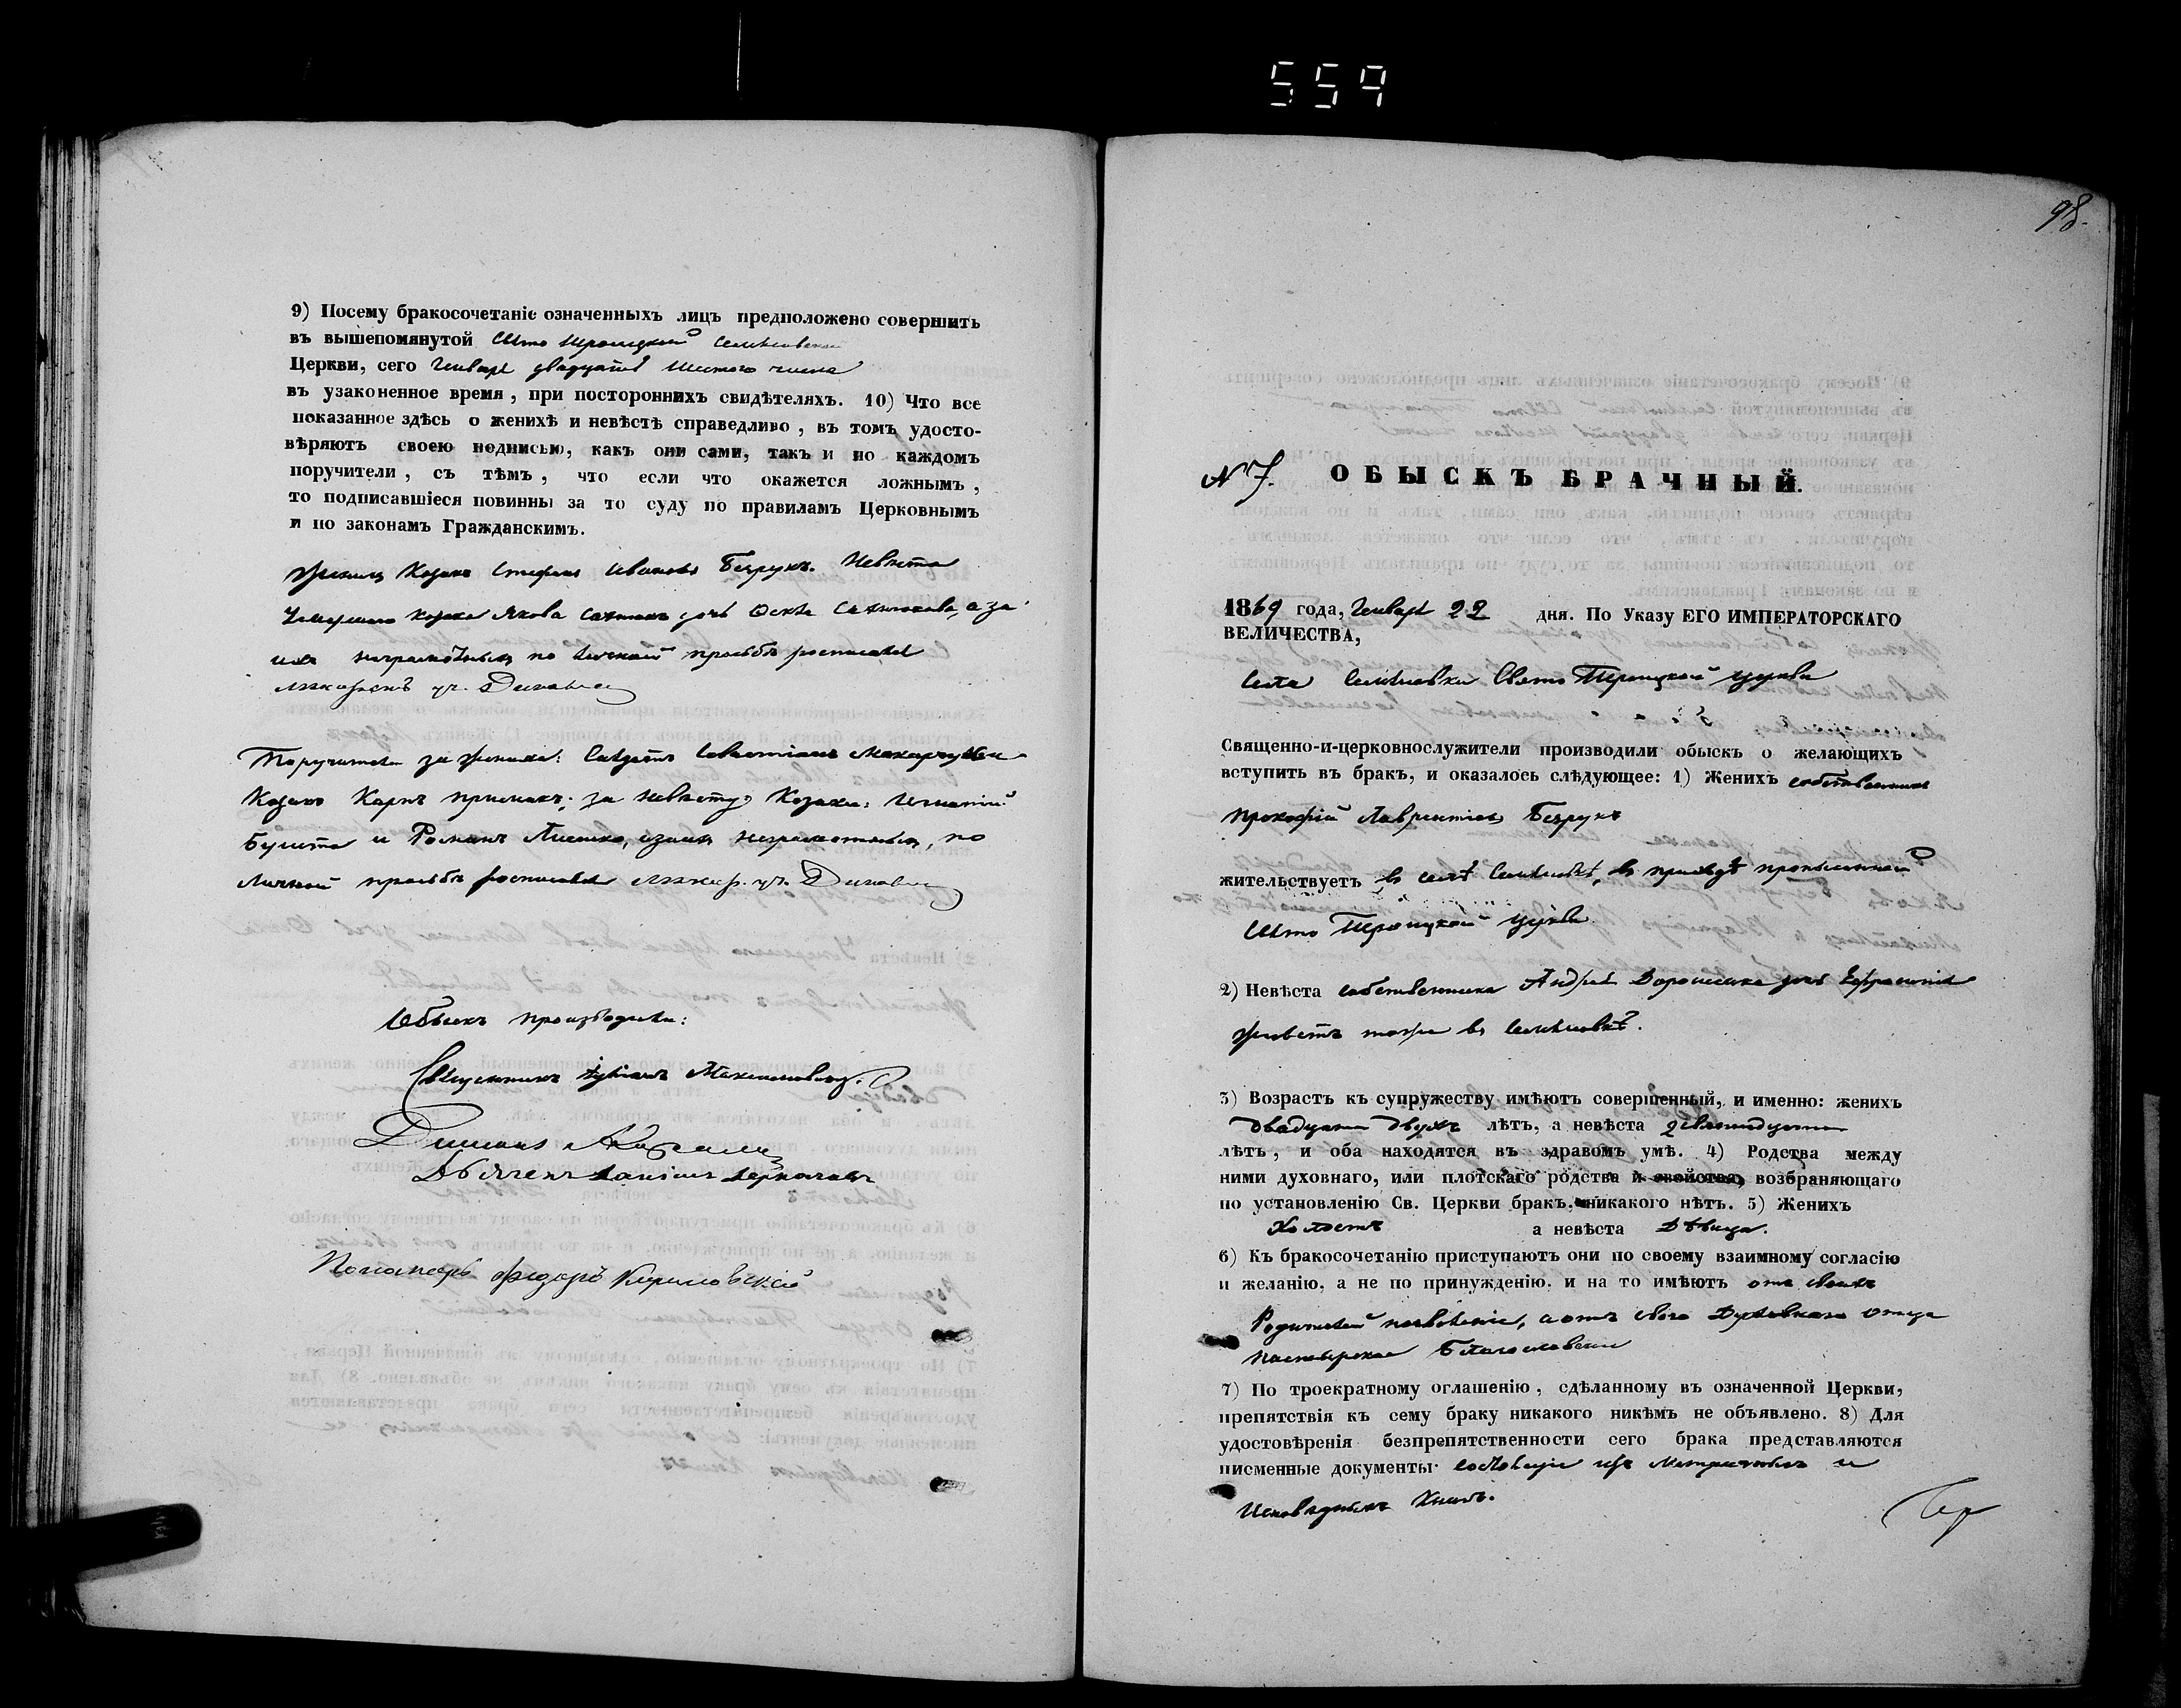 559
9) Посему бракосочетаніе означенныхъ лицъ предположено совершить
въ вышепомянутой Свято Троицкой
Церкви, сего Генваря двадцать шестого числа
въ узаконенное время, при постороннихъ свидѣтеляхъ. 10) Что все
показанное здѣсь о женихѣ и невѣстѣ справедливо, въ томъ удосто-
вѣряютъ своею подписью, какъ они сами, такъ и по каждомъ
поручители, съ тѣмъ, что если что окажется ложнымъ,
то подписавшіеся повинны за то суду по правиламъ Церковнымъ
и по законамъ Гражданскимъ.
Женихъ Козакъ Стефанъ Ивановъ Безрукъ. Невѣста
Умершаго козака Якова дочь а за
ихъ неграмотныхъ по личной просьбѣ росписался
Поручители за жениха: Севастіанъ
Козакъ Карпъ за невѣсту Козаки: Игнатій
и Романъ неграмотныхъ, по
Личной просьбѣ росписался
Обыскъ производили:
Священникъ
Даніилъ
Пономарь Федоръ
98.
N 7. ОБЫСКЪ БРАЧНЫЙ.
1869 года, Генваря 22 дня. По Указу ЕГО ИМПЕРАТОРСКАГО
ВЕЛИЧЕСТВА,
Села Свято Троицкой церкви
Священно-и-церковнослужители производили обыскъ о желающихъ
вступить въ бракъ, и оказалось слѣдующее: 1) Женихъ собственникъ
Прокофій Лаврентіевъ Безрукъ
жительствуетъ въ селѣ въ приходѣ прописанной
Свято Троицкой церкви.
2) Невѣста собственника Андрея дочь Ефросинія
живетъ тоже въ
3) Возрастъ къ супружеству имѣютъ совершенный, и именно: женихъ
двадцати двухъ лѣтъ, а невѣста девятнадцати
лѣтъ, и оба находятся въ здравомъ умѣ. 4) Родства между
ними духовнаго, или плотскаго родства и свойства, возбраняющаго
по установленію Св. Церкви бракъ, никакого нѣтъ. 5) Женихъ
Холостъ а невѣста Дѣвица.
6) Къ бракосочетанію приступаютъ они по своему взаимному согласію
и желанію, а не по принужденію, и на то имѣютъ отъ своихъ
Родителей позволеніе, а отъ своего Духовнаго Отца
пастырское Благословеніе
7) По троекратному оглашенію, сдѣланному въ означенной Церкви,
препятствія къ сему браку никакого никѣмъ не объявлено. 8) Для
удостовѣренія безпрепятственности сего брака представляются
писменные документы: изъ Метричныхъ и
Исповѣдныхъ Книгъ.